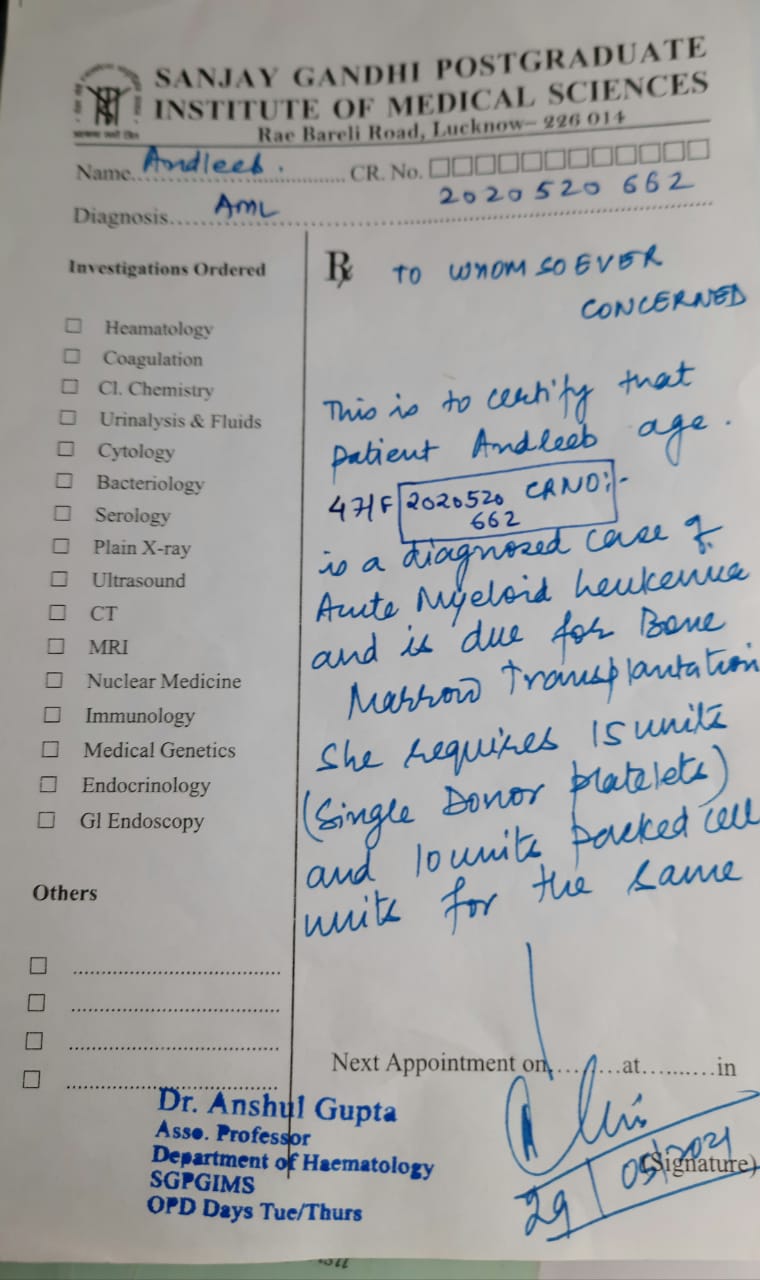 SANJAY GANDHI POSTGRADUATE
INSTITUTE OF MEDICAL SCIENCES
Rae Bareli Road, Lucknow– 226 014
Name. Andleeb. CR. No.
2020520 662
Diagnosis. AML
Investigations Ordered
Heamatology
Coagulation
Cl. Chemistry
Urinalysis & Fluids
Cytology
Bacteriology
Serology
Plain X-ray
Ultrasound
CT
MRI
Nuclear Medicine
Immunology
Medical Genetics
Endocrinology
GI Endoscopy
Others
Rx TO WHOM SO EVER
CONCERNED
This is to certify that
patient Andleeb age.
47/F 2020520 CRNO:-
662
is a diagnosed case of
Acute Myeloid Leukemia
and is due for Bone
Marrow Transplantation
She requires 15 units
(Single Donor platelets)
and 10 units packed cell
units for the same
Next Appointment on.......at..........in
(Signature)
29/05/2021
Dr. Anshul Gupta
Asso. Professor
Department of Haematology
SGPGIMS
OPD Days Tue/Thurs